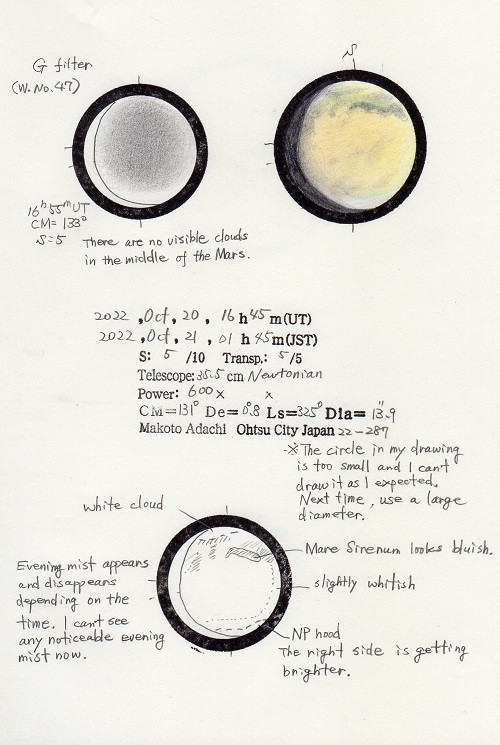 G filter
(W.No.47)
S
16h 55m UT
CM= 133°
S=5
There are no visible clouds
in the middle of the Mars.
2022 ,Oct, 20 , 16 h 45 m(UT)
2022 ,Oct, 21 , 01 h 45 m(JST)
S: 5 /10 Transp.: 5/5
Telescope: 35.5 cm Newtonian
Power: 600 x x
CM=131° De=0.°8 Ls=325° Dia= 13.″9
Makoto Adachi Ohtsu City Japan 22-287
※The circle in my drawing
is too small and I can't
draw it as I expected.
Next time, use a large
diameter.
white cloud
Mare Sirenum looks bluish.
Evening mist appears
and disappears
depending on the
time. I can't see
any noticeable evening
mist now.
slightly whitish
NP hood
The right side is getting
brighter.